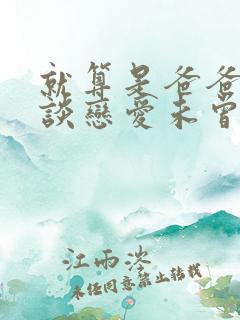 就算是爸爸
談戀愛未曾
江雨涔
未经同意禁止转载